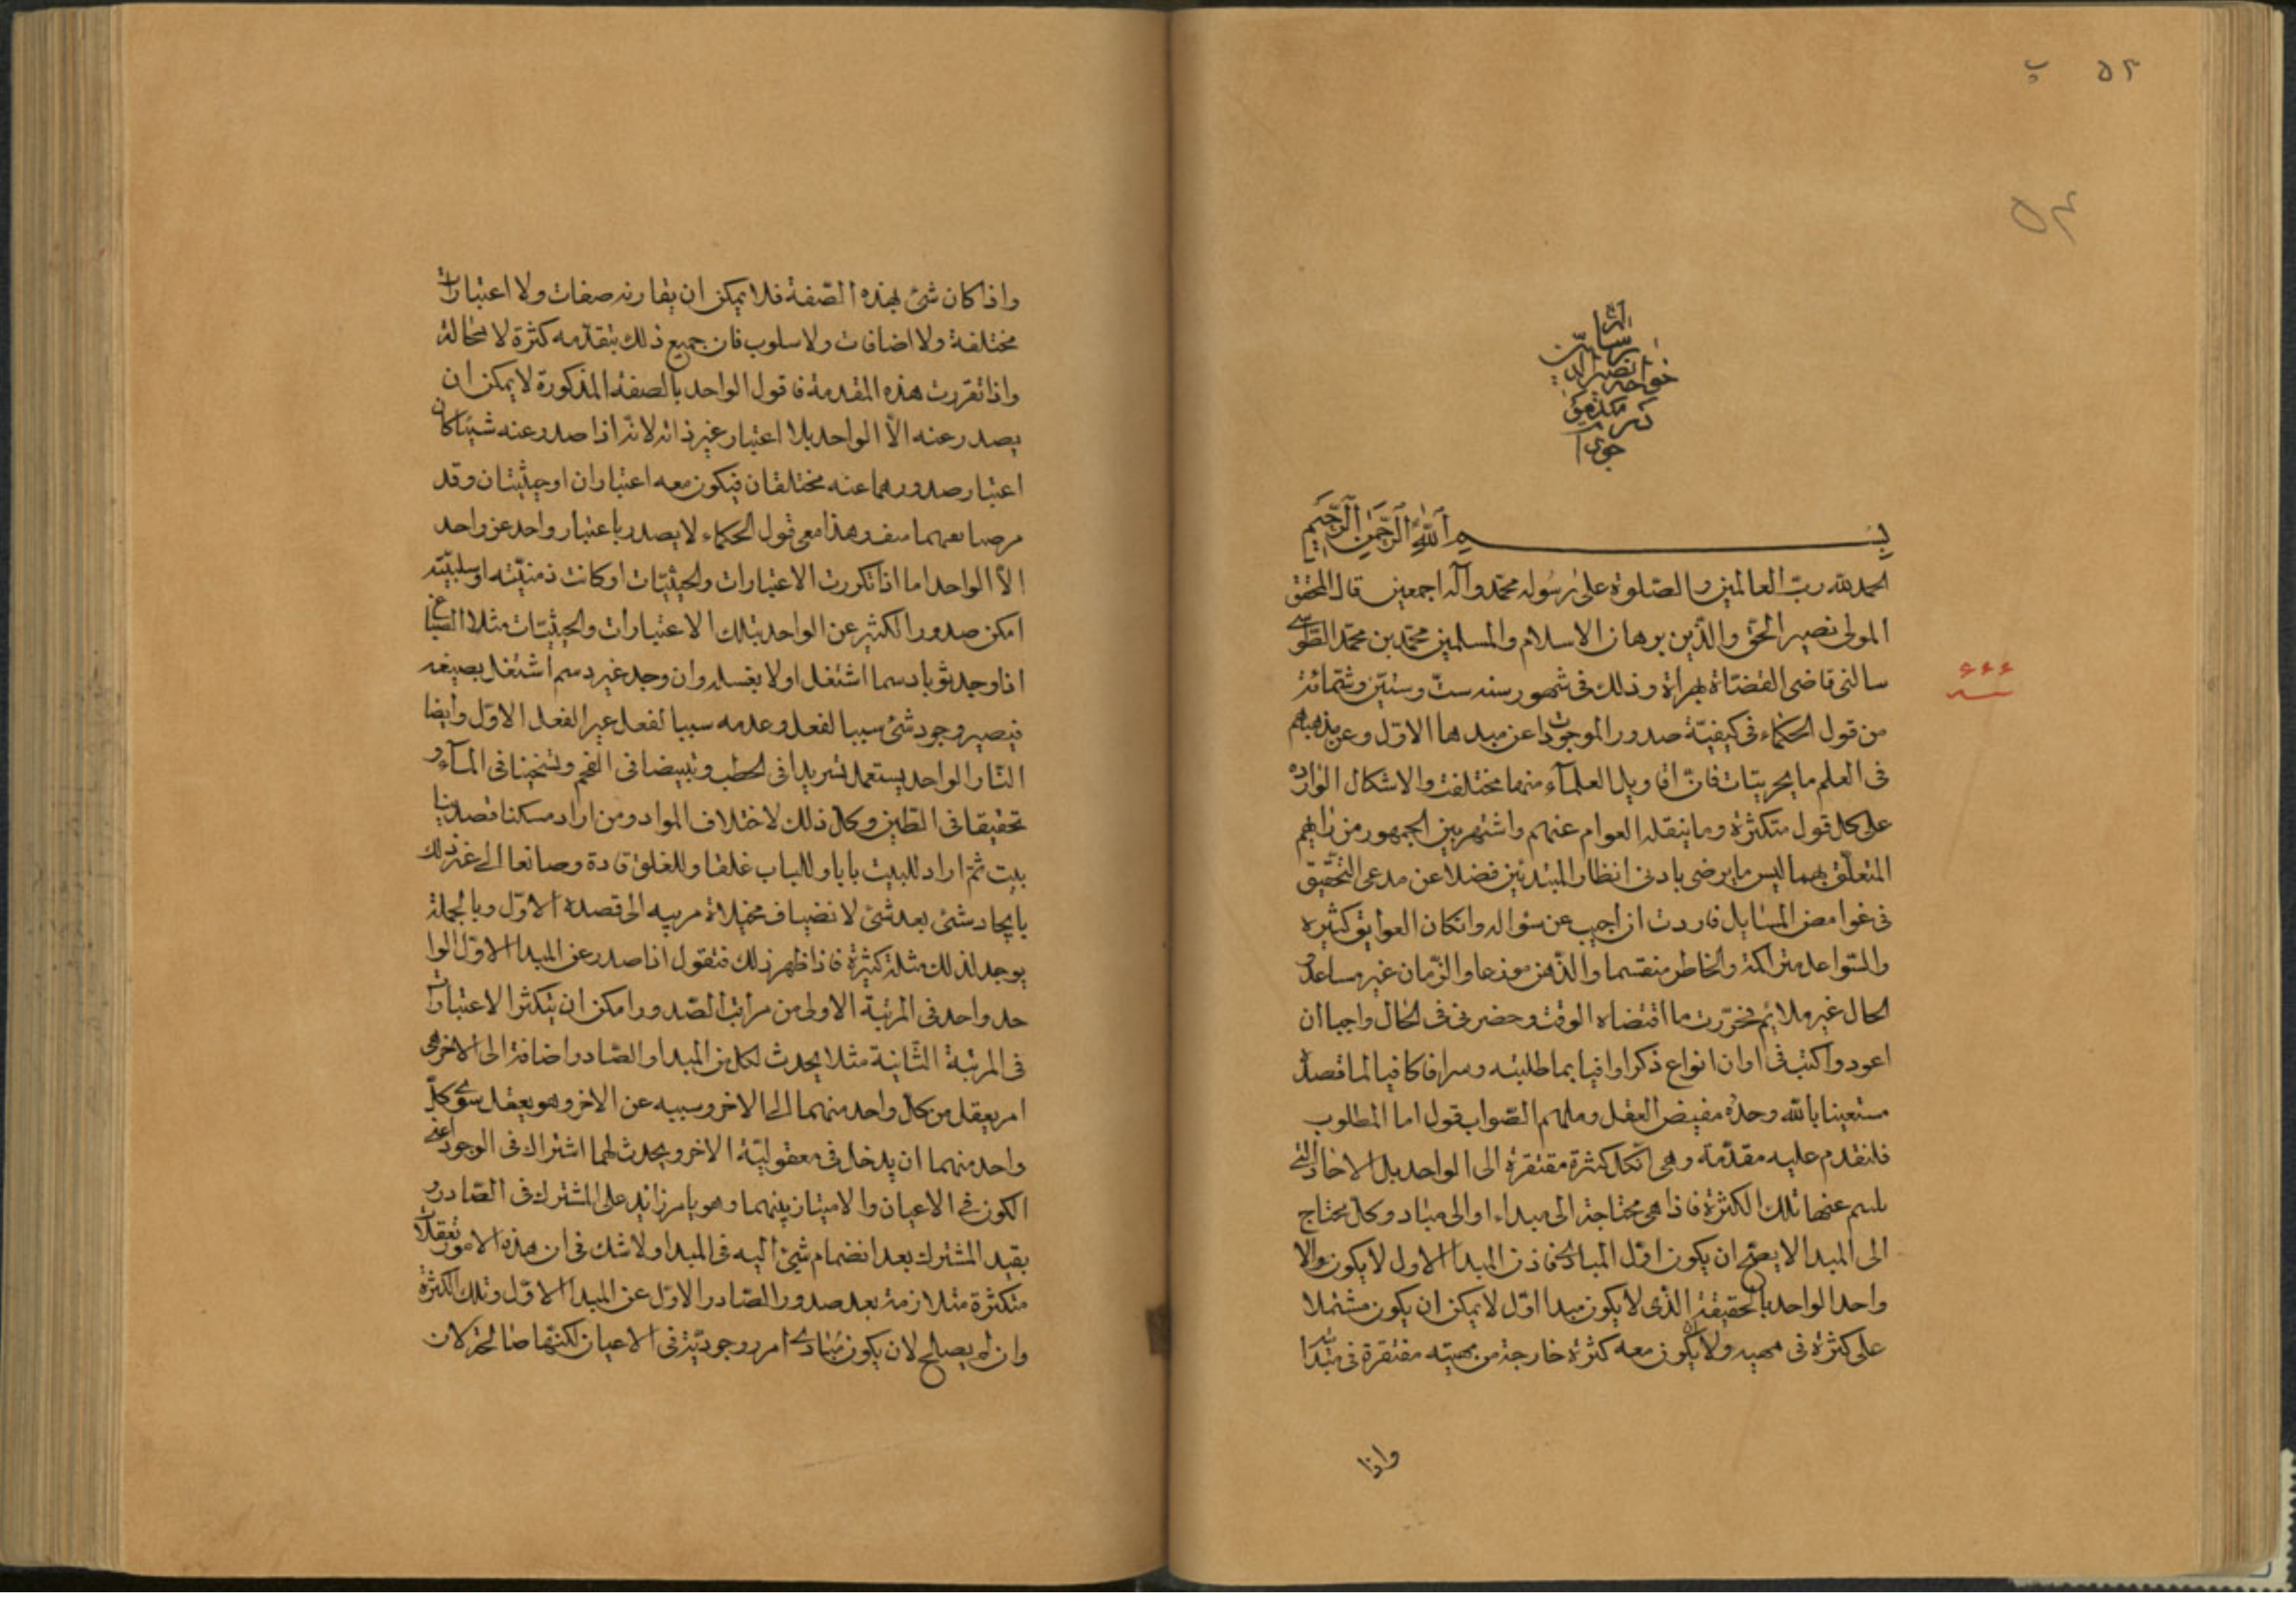 ٥٢ ب
٥٢
بسم الله الرحمن الرحيم
الحمد لله رب العالمين والصلوة على رسوله محمد وآله اجمعين قال المحقق
المولى نصير الحق والدين برهان الاسلام والمسلمين محمد بن محمد الطوسي
سالني قاضي القضاة بهراة وذلك في شهور سنه ست وستين وستمائة
من قول الحكماء في كيفية صدور الموجودات عن مبدهها الاول وعن مذهبهم
في العلم ما بجزئيات فان اقاويل العلمآء منها مختلفة والاشكال الوارده
على كل قول متكثرة وما ينقله العوام عنهم واشتهر بين الجمهور من رايهم
المتعلق بهما ليس ما يرضى بادنى انظار المبتدئين فضلا عن مدعى التحقيق
في غوامض المسايل فاردت ان اجيب عن سؤاله وان كان العوايق كثيره
والشواغل متراكمة والخاطر منقسما والذهن موزعا والزمان غير مساعد و
الحال غير ملائم فحررت ما اقتضاه الوقت وحضرني في الحال واجيا ان
اعود واكتب في اوان انواع ذكرا وافيا بما طلبته و كافيا لما قصده
مستعينا بالله وحده مفيض العقل وملهم الصواب قول اما المطلوب
فلنقدم عليه مقدمة وهي ان كل كثرة مفتقرة الى الواحد بل الاحاد التي
يلتئم عنها تلك الكثرة فاذا هي محتاجة الى مبداء او الى مباد وكل محتاج
الى المبدا لا يصح ان يكون اول المبادي فاذن المبدا الاول لا يكون والا
واحدا لواحد بالحقيقة الذي لا يكون مبدا اول لا يمكن ان يكون مشتملا
على كثرة في مهيه ولا ان يكون معه كثرة خارجة من مهيته مفتقرة في مبدا
واذا
واذا كان شئ بهذه الصفة فلا يمكن ان يقارنه صفات ولا اعتبارات
مختلفة ولا اضافات ولا سلوب فان جميع ذلك يتقدمه كثرة لا محالة
واذا تقررت هذه المقدمة فاقول الواحد بالصفة المذكورة لا يمكن ان
يصدر عنه الا الواحد بلا اعتبار غير ذاته لانه اذا صدر عنه شيئا كان
اعتبار صدورهما عنه مختلفان فيكون معه اعتباران او حيثيتان وقد
وهذا معنى قول الحكماء لا يصدر باعتبار واحد عن واحد
الا الواحد اما اذا تكررت الاعتبارات والحيثيات او كانت ذهنيته او سلبيته
امكن صدور الكثير عن الواحد بتلك الاعتبارات والحيثيات مثلا الصباغ
اذا وجد ثوبا دسما اشتغل اولا بغسله وان وجد غير دسم اشتغل بصبغه
فيصير وجود شئ سببا لفعل وعدمه سببا لفعل غير الفعل الاول وايضا
النار الواحد يستعمل تسريدا في الحطب وتبييضا في الفحم وتسخينا في المآء و
تحقيقا في الطين وكل ذلك لاختلاف المواد ومن اراد مسكنا قصد بنا
بيت ثم اراد للبيت بابا وللباب غلقا وللغلق قادة وصانعا الى غير ذلك
بايجاد شئ بعد شئ لانضياف الى قصده الاول وبالجملة
يوجد لذلك مثلة كثيرة فاذا ظهر ذلك فنقول اذا صدر عن المبدا الاول الوا
حد واحد في المرتبة الاولى من مراتب الصدور امكن ان يتكثر الاعتبارات
في المرتبة الثانية مثلا يحدث لكل من المبدا والصادر اضافة الى الاخر هي
امر يعقل من كل واحد منهما الى الاخر وسببه عن الاخر وهو يعقل سوى كل
واحد منهما ان يدخل في معقولية الاخر ويحدث لهما اشتراك في الوجود اعني
الكون في الاعيان والامتياز بينهما وهو بامر زايد على المشترك في الصادر و
بقيد المشترك بعد انضمام شئ اليه في المبدا ولا شك في ان هذه الامور تعقلات
متكثرة متلازمة بعد صدور الصادر الاول عن المبدا الاول وتلك الكثرة
وان لم يصالح لان يكون مبادي امر روجودية في الاعيان لكنها صالحة لان